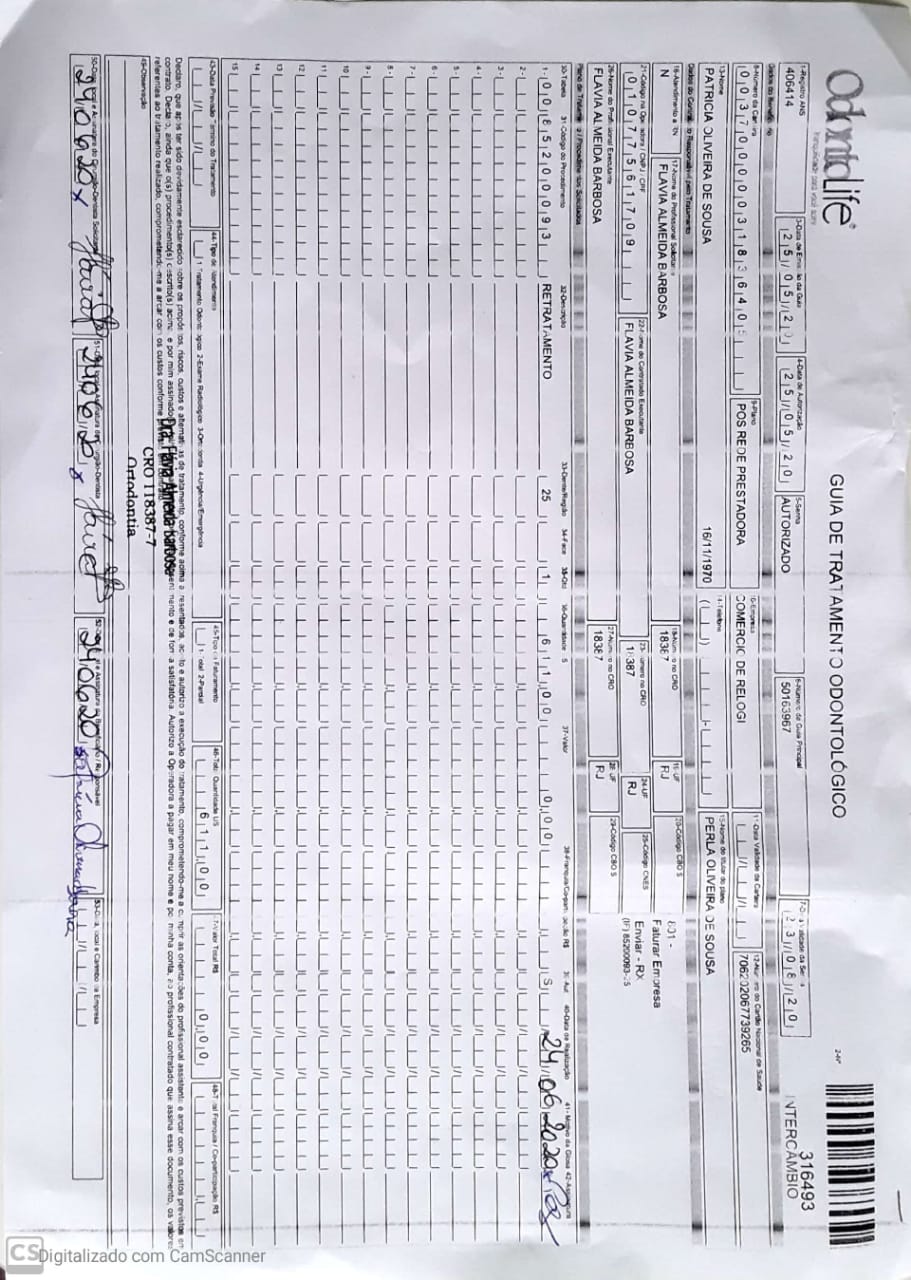 OdontoLife®
GUIA DE TRATAMENTO ODONTOLÓGICO
24P
316493
INTERCÂMBIO
1-Registro ANS
406414
3-Data de Emissão da Guia
25/05/20
4-Data de Autorização
25/05/20
5-Senha
AUTORIZADO
6-Número da Guia Principal
50163967
7-Data Validade da Senha
23/08/20
Dados do Beneficiário
8-Número da Carteira
9-Plano
POS REDE PRESTADORA
10-Empresa
COMERCIO DE RELOGI
11-Data Validade da Carteira
12-Número do Cartão Nacional de Saúde
706202067739265
13-Nome
PATRICIA OLIVEIRA DE SOUSA
16/11/1970
14-Telefone
15-Nome do titular do plano
PERLA OLIVEIRA DE SOUSA
Dados do Contratado Responsável pelo Tratamento
16-Atendimento a RN
N
17-Nome do Profissional Solicitante
FLAVIA ALMEIDA BARBOSA
18-Número no CRO
18387
19-UF
RJ
20-Código CBO S
21-Código na Operadora / CNPJ / CPF
01077561709
22-Nome do Contratado Executante
FLAVIA ALMEIDA BARBOSA
23-Número no CRO
18387
24-UF
RJ
25-Código CNES
26-Nome do Profissional Executante
FLAVIA ALMEIDA BARBOSA
27-Número no CRO
18387
28-UF
RJ
29-Código CBO S
Faturar Empresa
Enviar - RX
Plano de Tratamento / Procedimentos Solicitados
30-Tabela 31-Código do Procedimento 32-Descrição 33-Dente/Região 34-Face 35-Qtd 36-Quantidade 37-Valor 38-Franquia/Co-participação R$ 39-Aut 40-Data de Realização 41-Motivo da Glosa 42-Assinatura
1- 00 85200093 RETRATAMENTO 25 1 611,00 0,00 S 24/06/2020
2-
3-
4-
5-
6-
7-
8-
9-
10
11
12
13
14
15
43-Data Previsão Término do Tratamento
44-Tipo de Atendimento
1-Tratamento Odontológico 2-Exame Radiológico 3-Ortodontia 4-Urgência/Emergência
45-Tipo de Faturamento
1-Total 2-Parcial
46-Total Quantidade US
611,00
47-Valor Total R$
0,00
48-Total Franquia / Co-participação R$
Declaro, que após ter sido devidamente esclarecido sobre os propósitos, riscos, custos e alternativas de tratamento, conforme acima apresentados, aceito e autorizo a execução do tratamento, comprometendo-me a cumprir as orientações do profissional assistente e arcar com os custos previstos em
contrato. Declaro, ainda que o(s) procedimento(s) descrito(s) acima, e por mim assinado
mento e de forma satisfatória. Autorizo a Operadora a pagar em meu nome e por minha conta, ao profissional contratado que assina esse documento, os valores
referentes ao tratamento realizado, comprometendo-me a arcar com os custos conforme
49-Observação
Dra. Flávia Almeida Barbosa
CRO 118387-7
Ortodontia
52-Data e Assinatura do Beneficiário / Responsável
240620
53-Data, local e Carimbo da Empresa
CS Digitalizado com CamScanner